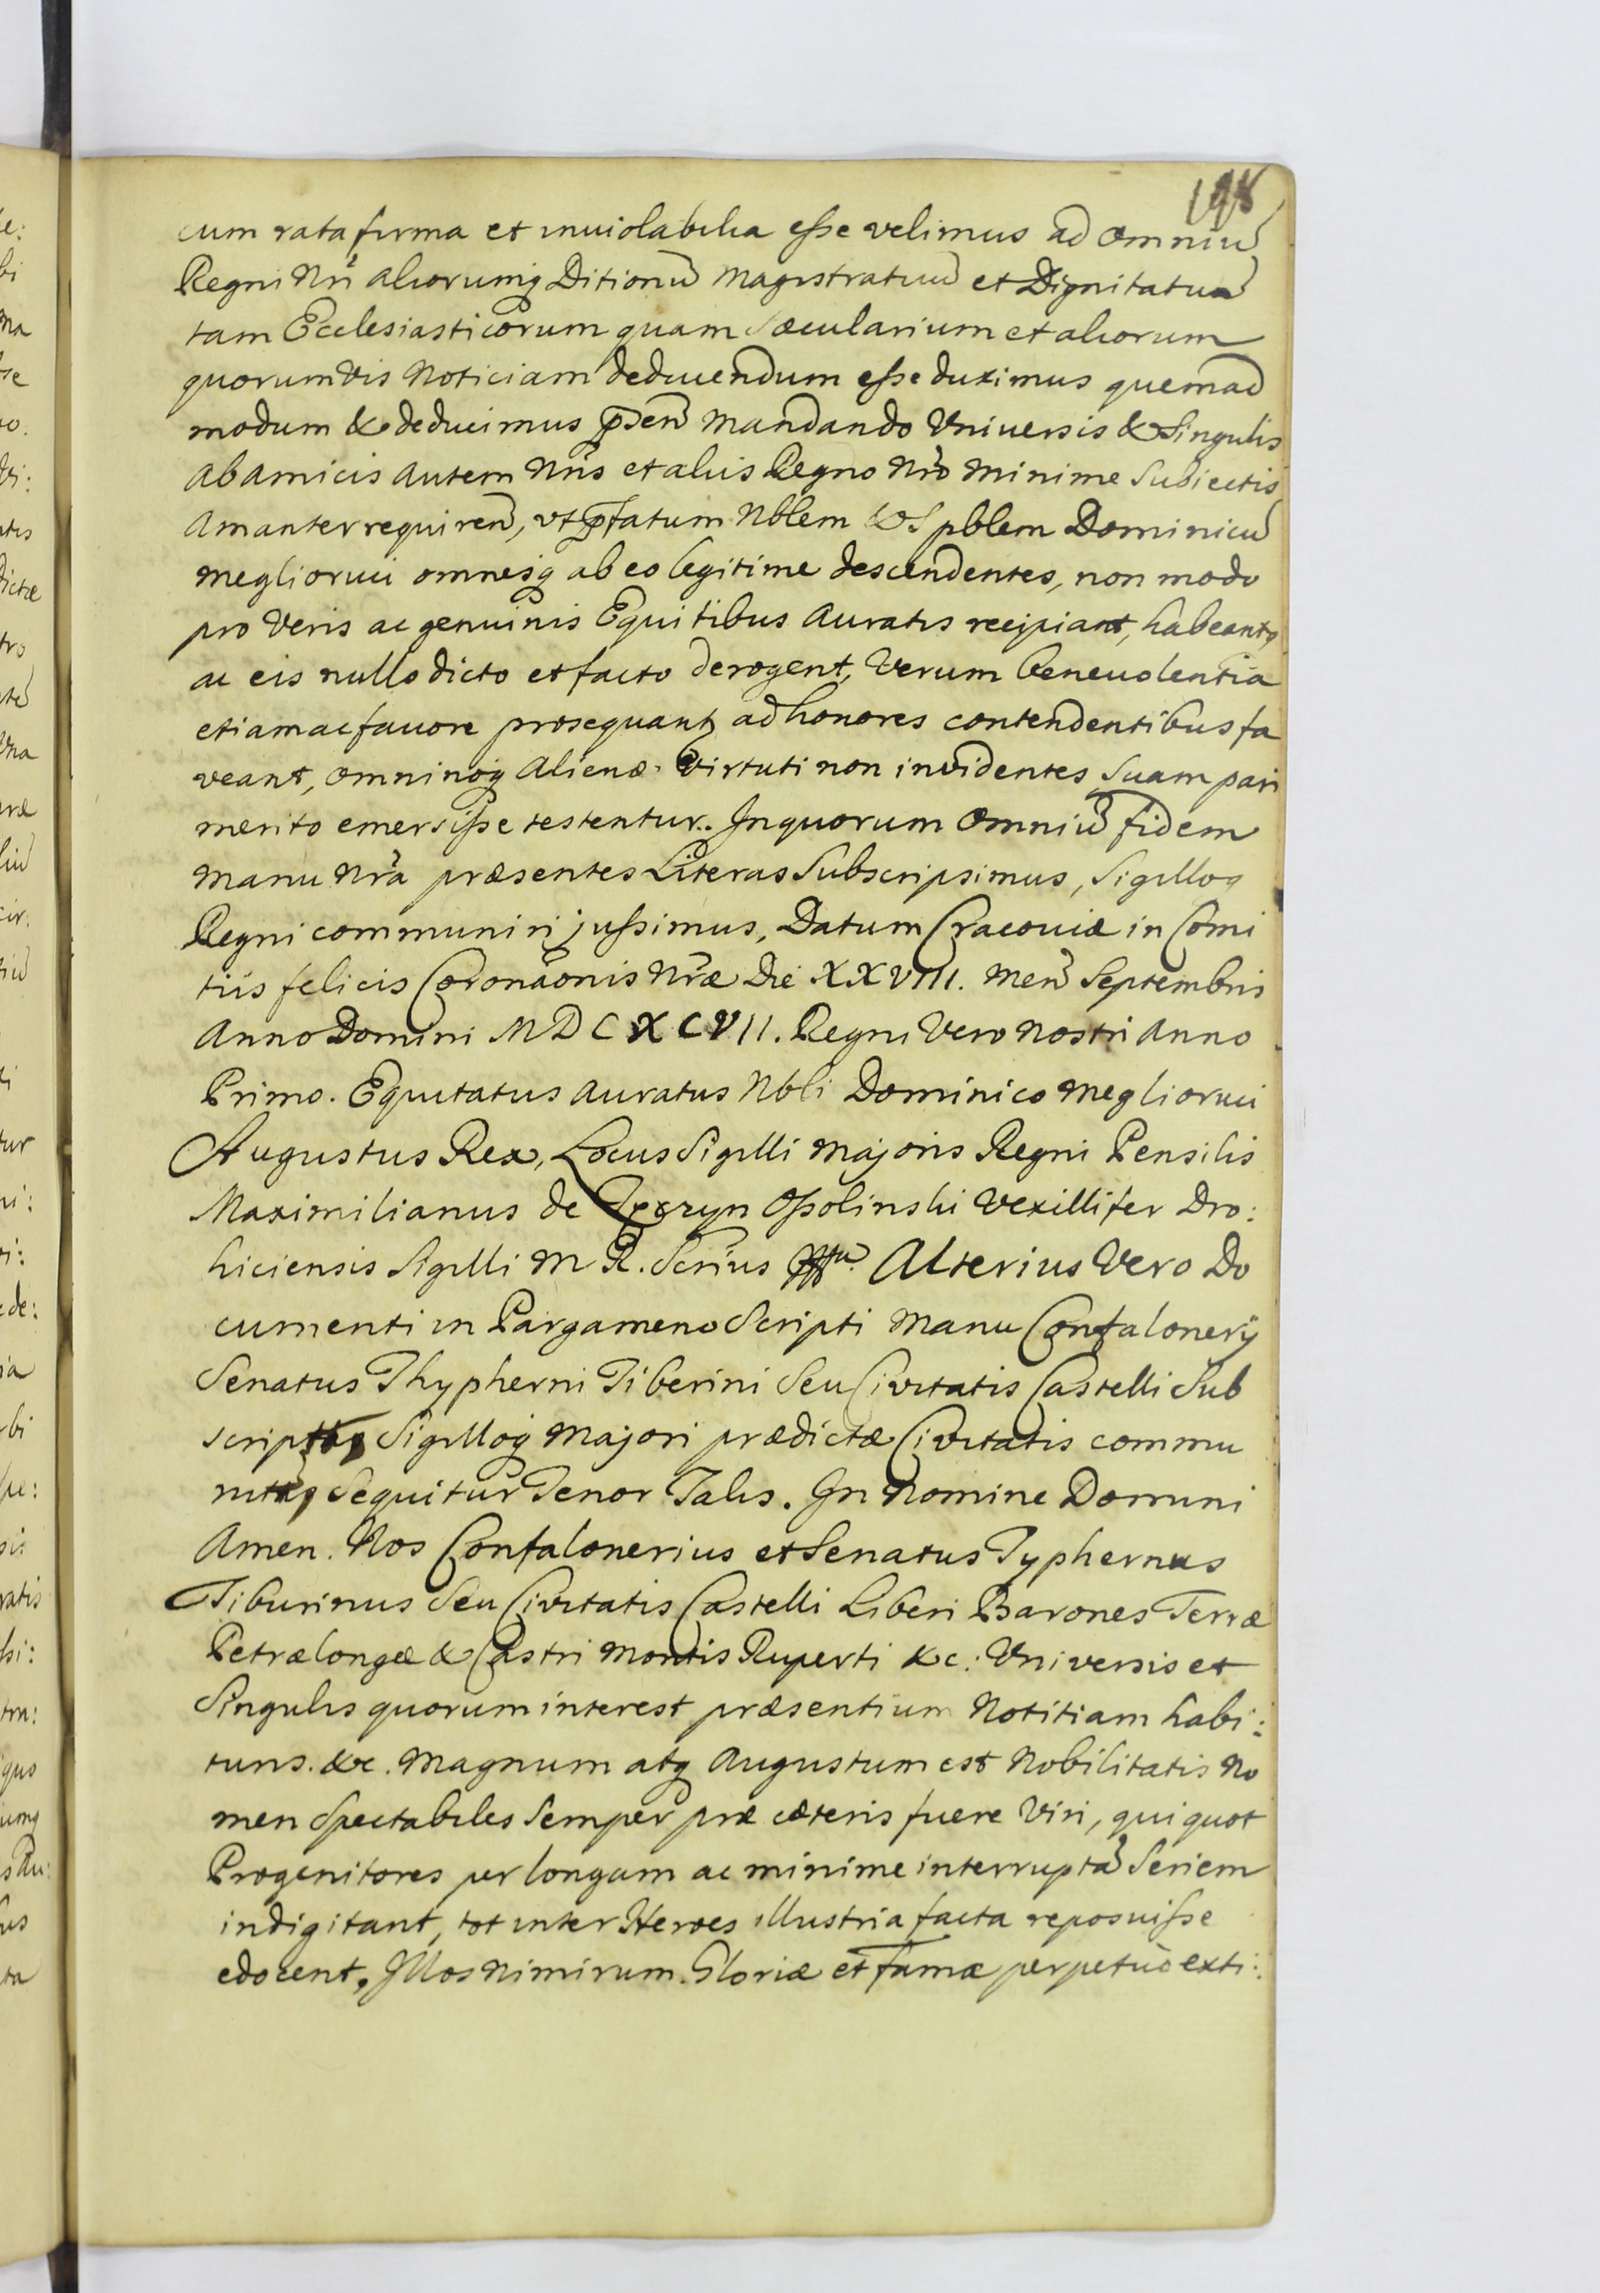 198
cum rata firma et inuiolabilia esse velimus ad omniũ
Regni Nri aliorumq Ditionũ Magistratuũ et Dignitatuũ
tam Ecclesiasticorum quam Sæcularium et aliorum
quorumvis Noticiam deducendum esse duximus quemad
modum & deducimus pñsen Mandando Vniuersis & Singulis
ab amicis autem Nris et aliis Regno Nro Minime Subiectis
Amanter requiren, vt pfatum Nblem & Spblem Dominicũ
Meglioruci omnesq ab eo legitime descendentes, non modo
pro Veris ac genuinis Equitibus Auratis recipiant, habeantq
ac eis nullo dicto et facto derogent, Verum beneuolentia
etiam ac fauore prosequantq ad honores contendentibus fa
veant, omninoq Alienæ Virtuti non invidentes Suam pari
merito emersisse testentur. In quorum omniũ fidem
Manu Nra præsentes Literas Subscripsimus, Sigilloq
Regni communiri jussimus, Datum Cracouiæ in Comi
tiis felicis Coronaonis Nræ Die XXVIII. Men Septembris
Anno Domini MDCXCVII. Regni Vero Nostri Anno
Primo. Equitatus Auratus Nbli Dominico Meglioruci
Augustus Rex, Locus Sigilli Majoris Regni Pensilis
Maximilianus de Tęczyn Ossolinski Vexillifer Dro:
hiciensis Sigilli M R. Scrius Alterius Vero Do
cumenti in Pargameno Scripti Manu Confalonerij
Senatus Thypherni Tiberini Seu Civitatis Castelli Sub
scriptoq Sigilloq Majori prædictæ Civitatis commu
nitoq Sequitur Tenor Talis. In Nomine Domini
Amen. Nos Confalonerius et Senatus Typhernus
Tiburinus Seu Civitatis Castelli Liberi Barones Terræ
Petrælongæ & Castri Montis Ruperti &c: Vniversis et
Singulis quorum interest præsentium Notitiam habi:
turis. &c. Magnum atq Augustum est Nobilitatis No
men Spectabiles Semper præ cæteris fuere Viri, qui quot
Progenitores per longam ac minime interruptã Seriem
indigitant, tot inter Heroes illustria facta reposuisse
edocent, Illos nimirum Gloriæ et famæ perpetuò exti: